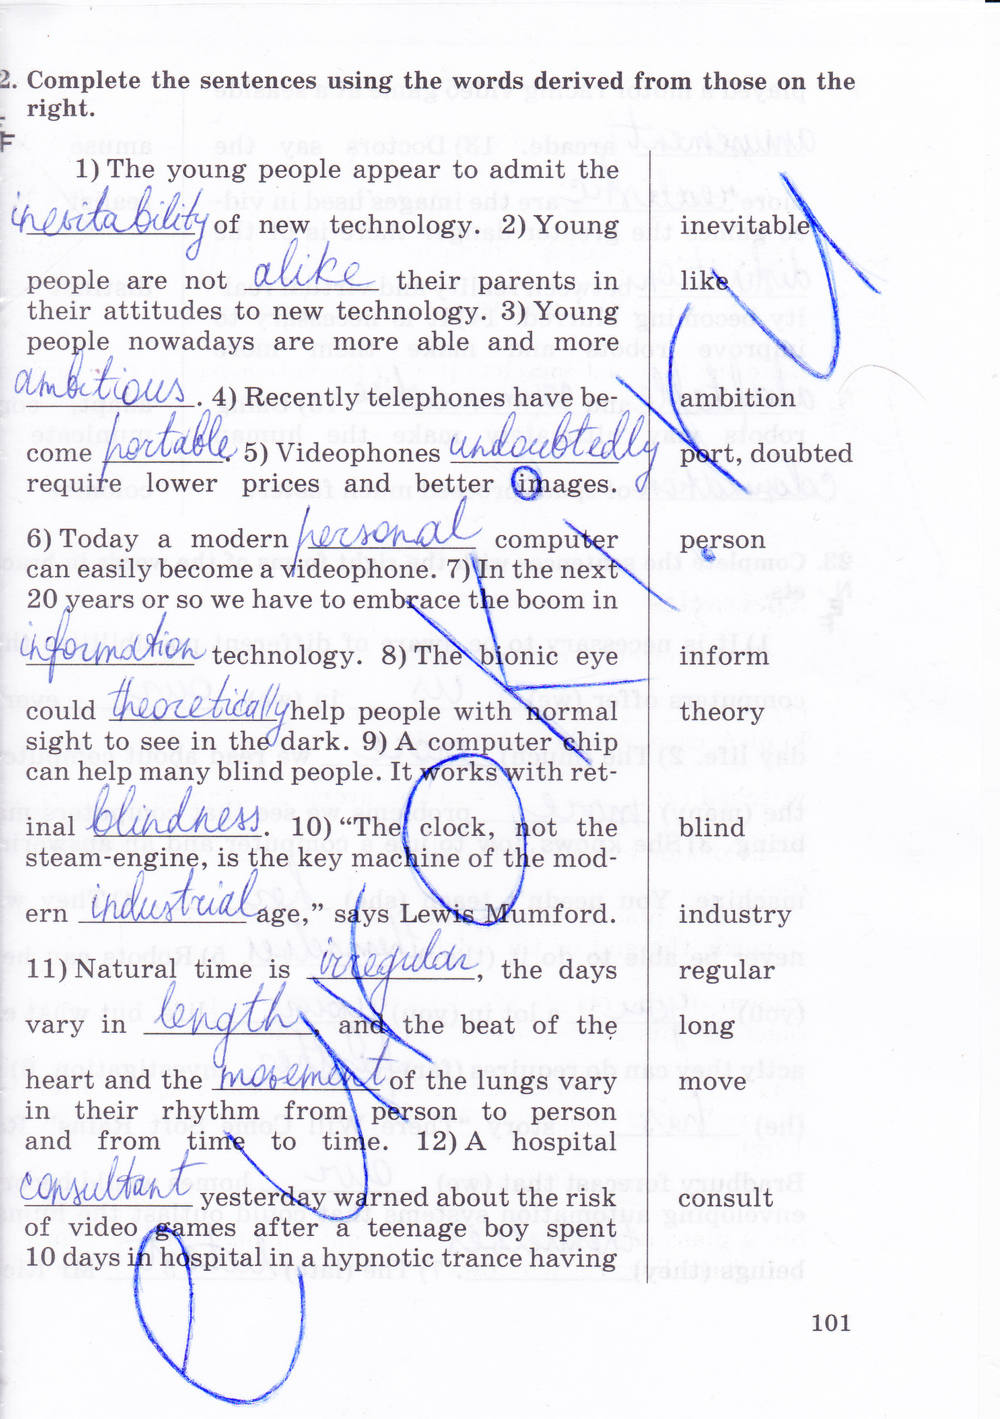 2. Complete the sentences using the words derived from those on the
right.
1) The young people appear to admit the
inevitability of new technology. 2) Young inevitable
people are not alike their parents in like
their attitudes to new technology. 3) Young
people nowadays are more able and more
ambitious . 4) Recently telephones have be- ambition
come portable. 5) Videophones undoubtedly port, doubted
require lower prices and better images.
6) Today a modern personal computer person
can easily become a videophone. 7) In the next
20 years or so we have to embrace the boom in
information technology. 8) The bionic eye inform
could theoretically help people with normal theory
sight to see in the dark. 9) A computer chip
can help many blind people. It works with ret-
inal blindness. 10) “The clock, not the blind
steam-engine, is the key machine of the mod-
ern industrial age,” says Lewis Mumford. industry
11) Natural time is irregular, the days regular
vary in length, and the beat of the long
heart and the movement of the lungs vary move
in their rhythm from person to person
and from time to time. 12) A hospital
consultant yesterday warned about the risk consult
of video games after a teenage boy spent
10 days in hospital in a hypnotic trance having
101